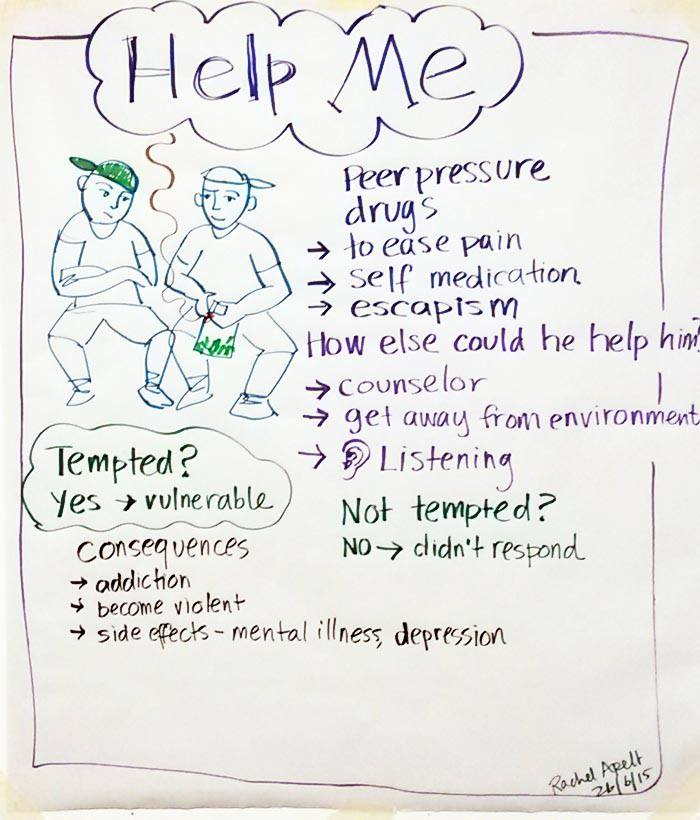 Help Me
Peer pressure
drugs
→ to ease pain
→ self medication
→ escapism
How else could he help him?
→ counselor
→ get away from environment
→ Listening
Tempted?
Yes → vulnerable
Not tempted?
NO → didn't respond
Consequences
→ addiction
→ become violent
→ side effects - mental illness, depression
Rachel Apelt
26/6/15